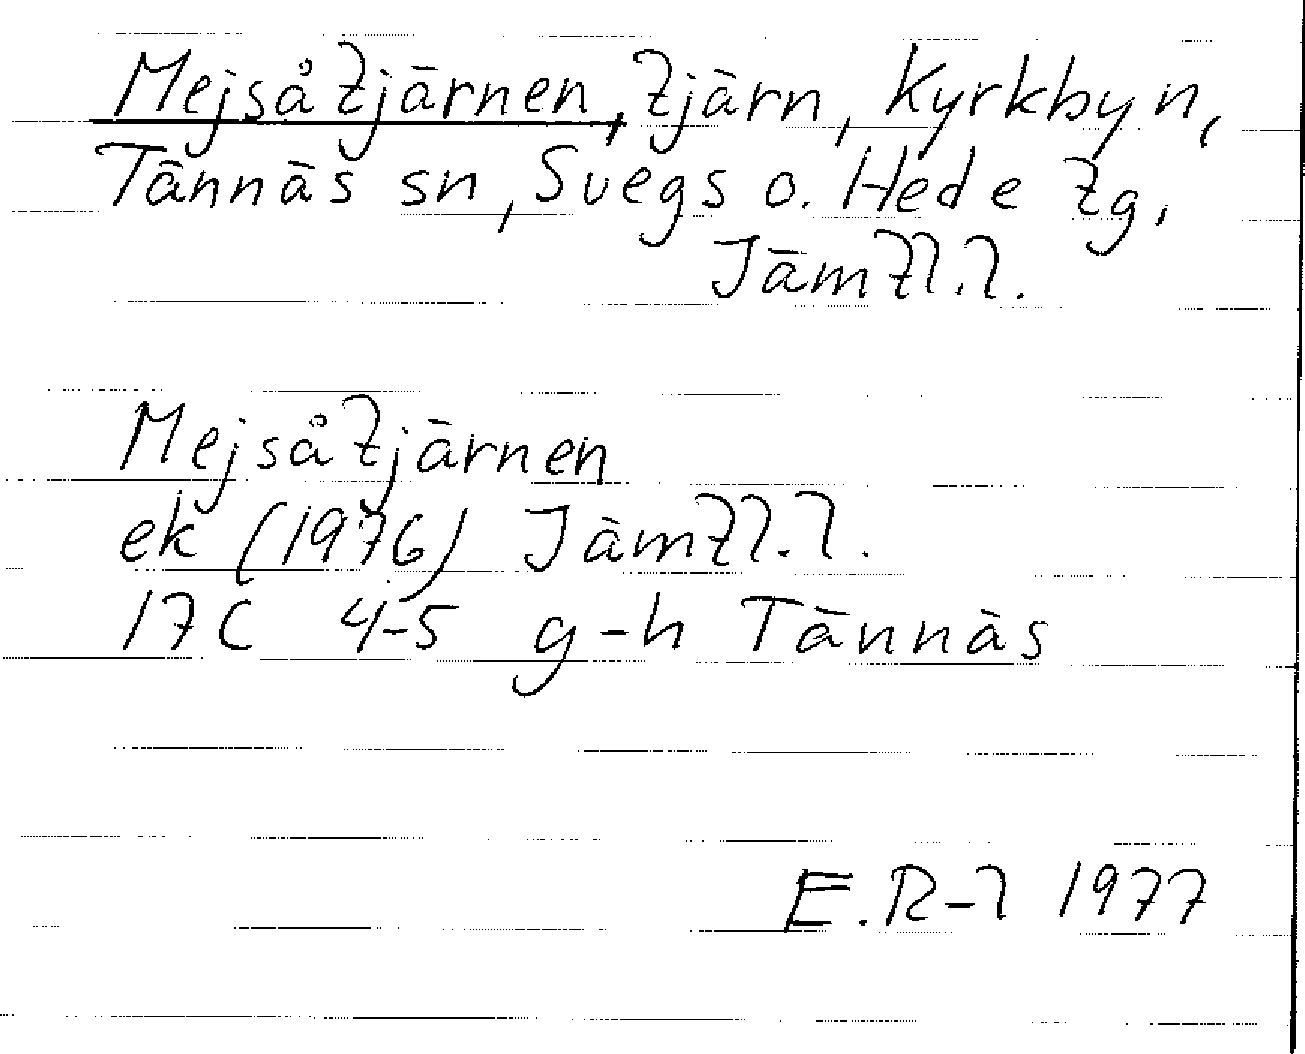 Mejsåtjärnen, tjärn, Kyrkbyn,
Tännäs sn, Svegs o. Hede tg,
Jämtl.l.
Mejsåtjärnen
ek (1976) Jämtl.l.
17C 4-5 g-h Tännäs
E.R-l 1977